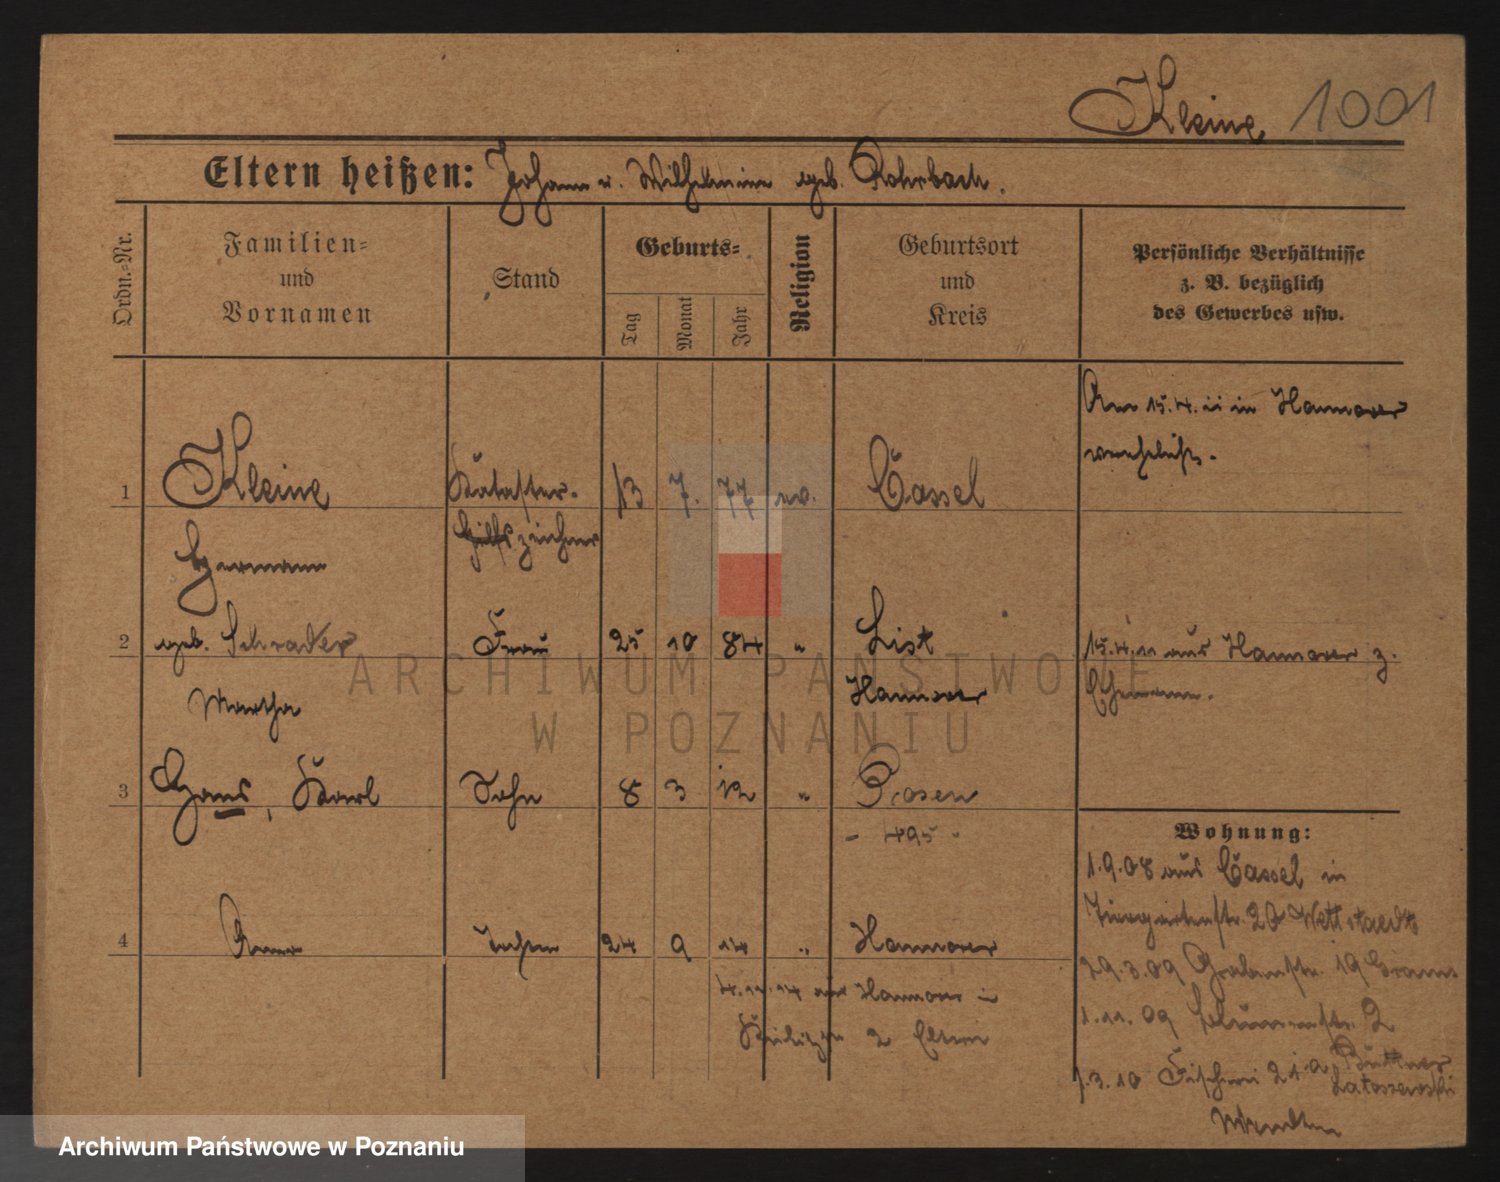 Kleine 1001
Eltern heißen: Johann u. Wilhelmine geb. Rohrbach.
Ordn.-Nr.
Familien-
und
Vornamen
Stand
Geburts-
Tag
Monat
Jahr
Religion
Geburtsort
und
Kreis
Persönliche Verhältnisse
z. B. bezüglich
des Gewerbes usw.
Am 15.4.11 in Hannover
verehelicht.
1 Kleine Kataster- 13 7. 77 ev. Cassel
Hermann Hilfszeichner
2 geb. Schrader Frau 25 10 84 " List
Martha Hannover
15.4.11 aus Hannover z.
Ehemann.
3 Hans, Karl Sohn 8 3 12 " Posen
- 495 -
4 24 9 14 " Hannover
4.11.14 aus Hannover in
2 Eltern
Wohnung:
1.9.08 aus Cassel in
Tiergartenstr. 20 Wettstaedt
29.3.09 Grabenstr. 19
1.11.09 Blumenstr. 2
1.3.10 Fischerei 21a Büttner
Latoszewski
Wenden
ARCHIWUM PAŃSTWOWE
W POZNANIU
Archiwum Państwowe w Poznaniu